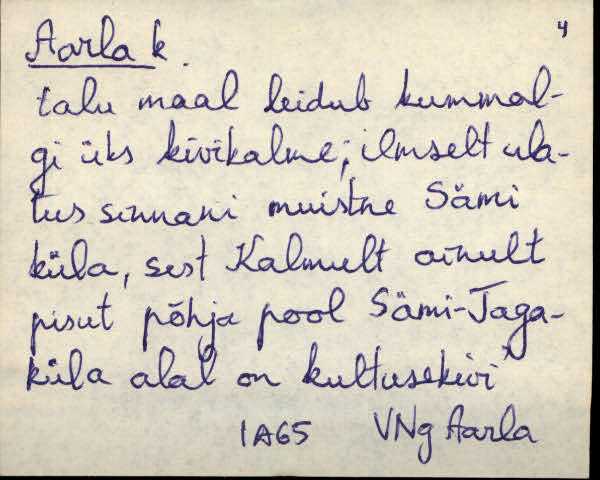 4
Aarla k.
talu maal leidub kummal-
gi üks kivikalme; ilmselt ula-
tus sinnani muistne Sämi
küla, sest Kalmult ainult
pisut põhja pool Sämi-Taga-
küla alal on kultusekivi
IA65 VNg Aarla